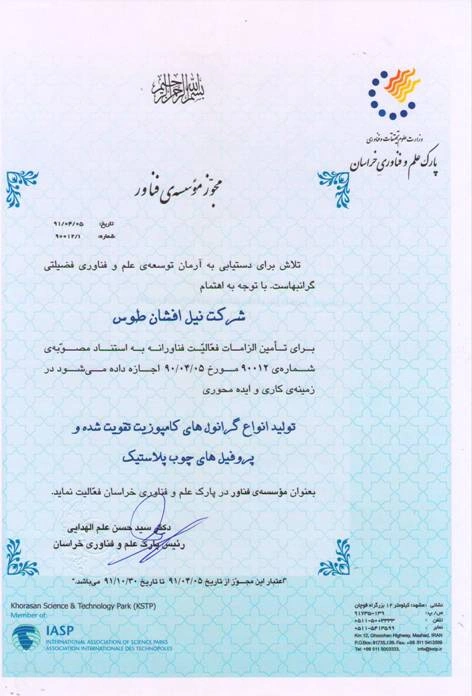 بسم الله الرحمن الرحیم
وزارت علوم تحقیقات و فناوری
پارک علم و فناوری خراسان
مجوّز مؤسسه‌ی فناور
تاریخ: ۹۱/۰۴/۰۵
شماره: ۹۰۰۱۲/۱
تلاش برای دستیابی به آرمان توسعه‌ی علم و فناوری فضیلتی
گرانبهاست. با توجه به اهتمام
شرکت نیل افشان طوس
برای تأمین الزامات فعالیّت فناورانه به استناد مصوّبه‌ی
شماره‌ی ۹۰۰۱۲ مورخ ۹۰/۰۴/۰۵ اجازه داده می‌شود در
زمینه‌ی کاری و ایده محوری
تولید انواع گرانول های کامپوزیت تقویت شده و
پروفیل های چوب پلاستیک
بعنوان مؤسسه‌ی فناور در پارک علم و فناوری خراسان فعّالیت نماید.
دکتر سید حسن علم الهدایی
رئیس پارک علم و فناوری خراسان
"اعتبار این مجوز از تاریخ ۹۱/۰۴/۰۵ تا تاریخ ۹۱/۱۰/۳۰ می‌باشد"
Khorasan Science & Technology Park (KSTP)
Member of:
IASP
INTERNATIONAL ASSOCIATION OF SCIENCE PARKS
ASSOCIATION INTERNATIONALE DES TECHNOPOLES
نشانی: مشهد؛ کیلومتر ۱۲ بزرگراه قوچان
ص/پ: ۹۱۷۳۵-۱۳۹
تلفن: ۰۵۱۱-۵۰۰۳۳۳۳
نمابر: ۰۵۱۱-۵۴۱۳۵۹۹
Km 12, Ghoochan Highway, Mashad, IRAN